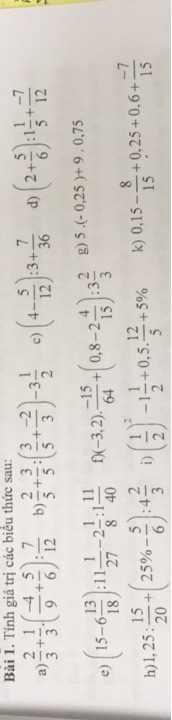 Bài 1. Tính giá trị các biểu thức sau:
a) 2/3 + 1/3 . (-4/9 + 5/6) : 7/12 b) 2/5 + 3/5 : (3/5 + -2/3) - 3 1/2 c) (4 - 5/12) : 3 + 7/36 d) (2 + 5/6) : 1 1/5 + -7/12
e) (15 - 6 13/18) : 11 1/27 - 2 1/8 : 1 11/40 f) (-3,2) . -15/64 + (0,8 - 2 4/15) : 3 2/3 g) 5 . (-0,25) + 9 . 0,75
h) 1,25 : 15/20 + (25% - 5/6) : 4 2/3 i) (1/2)² - 1 1/2 + 0,5 . 12/5 + 5% k) 0,15 - 8/15 + 0,25 + 0,6 + -7/15